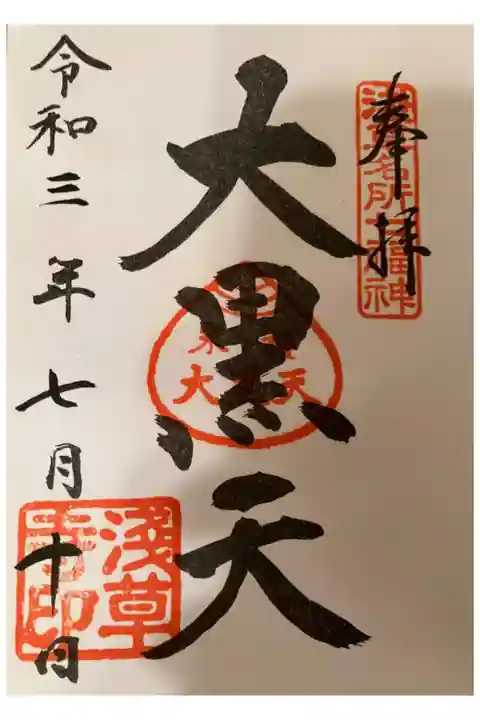 奉拝
浅草名所七福神
大黒天
大 天
令和三年七月十日
淺草
寺印